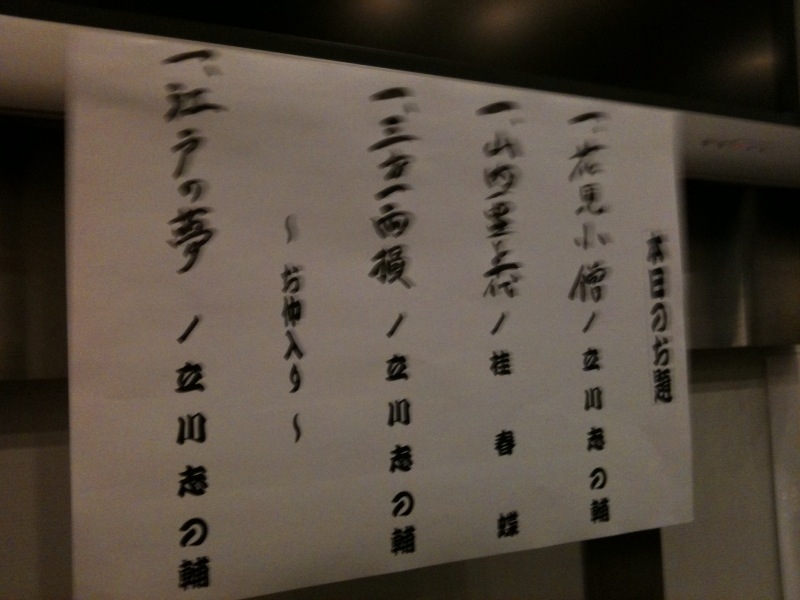 本日のお題
一、花見小僧／立川志の輔
一、山内一豊と千代／桂春蝶
一、三方一両損／立川志の輔
～お仲入り～
一、江戸の夢／立川志の輔